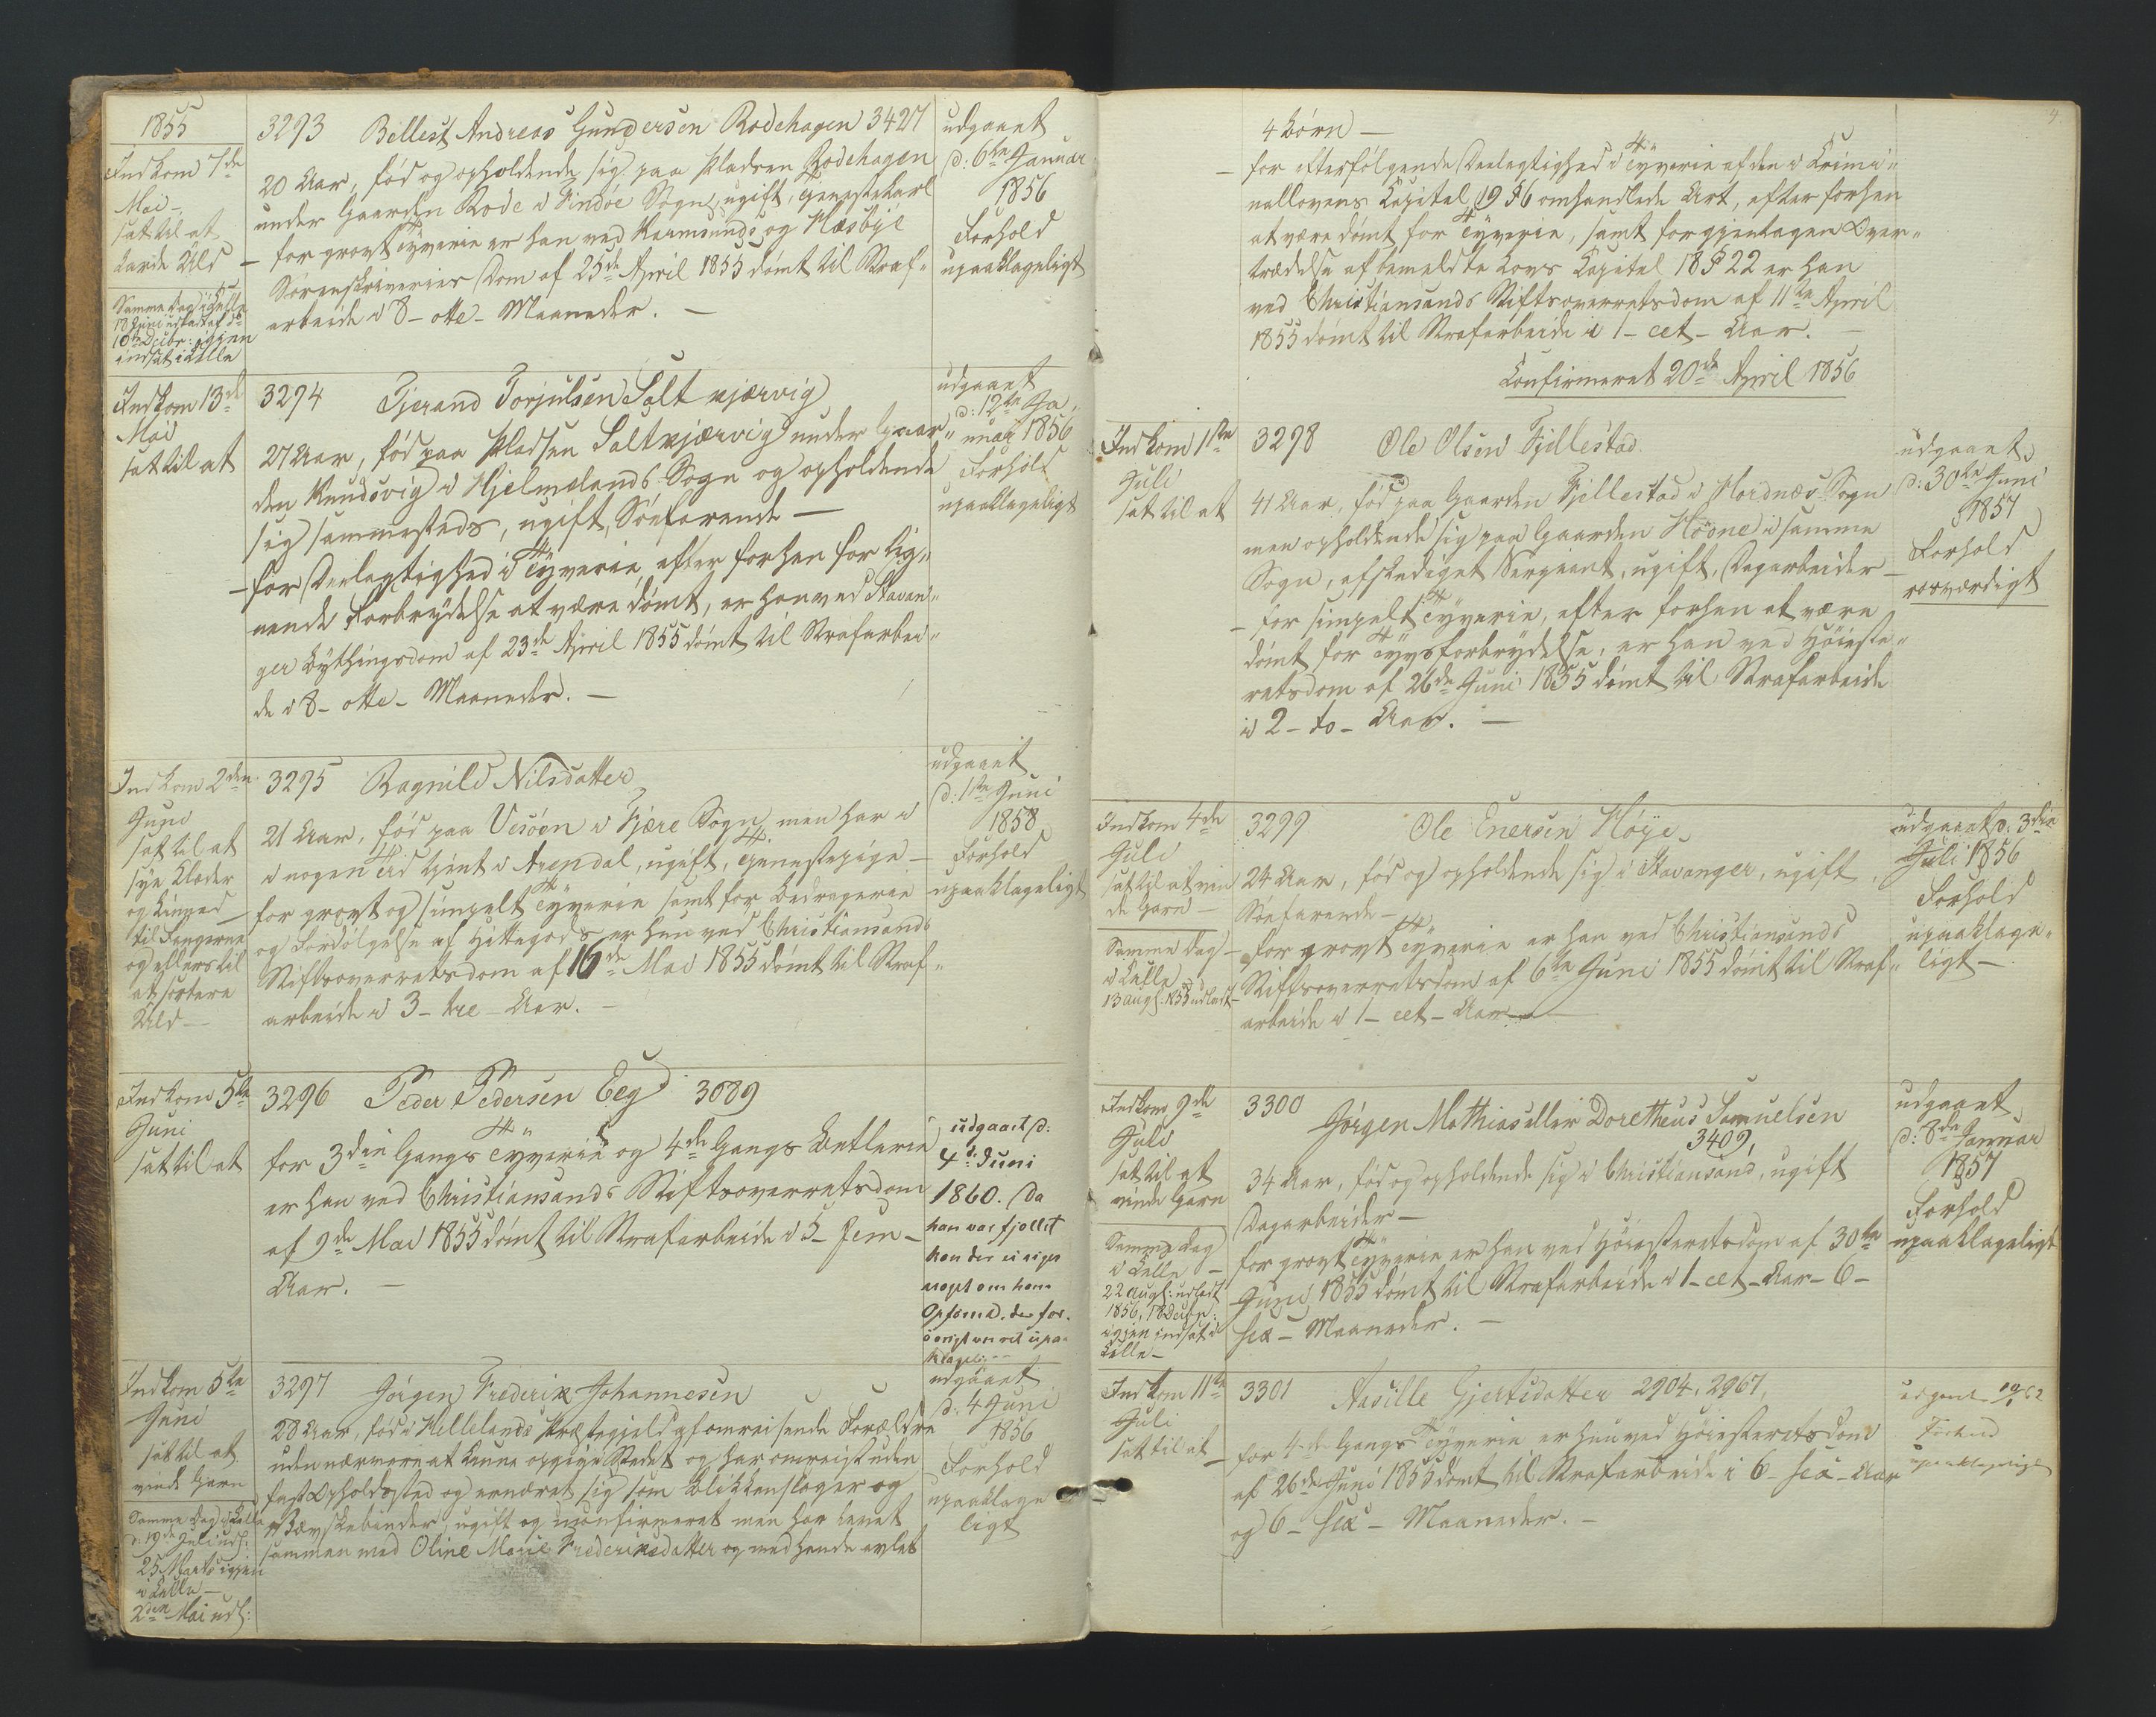 1855
Indkom 7de
Mai
sat til at
karde Uld
Samme Dag i Celle
18 Juni udladt af do
10de Decbr: igjen
indsat i Celle
3293 Bellest Andreas Gundersen Rodehagen 3427
20 Aar, fød og opholdende sig paa Pladsen Rodehagen
under Gaarden Rode i Findöe Sogn, ugift, Tjenestekarl
– for grovt Tyverie er han ved Karmsunds og Hæsbye
Sorenskriveries Dom af 25de April 1855 dömt til Straf„
arbeide i 8 – otte – Maaneder. –
udgaaet
d. 6te Januar
1856
Forhold
upaaklageligt
Indkom 13de
Mai
sat til at
3294 Tjerand Torjulsen Saltkjærvig
27 Aar, fød paa Pladsen Saltkjærvig under Gaar„
den Knudsvig i Hjelmelands Sogn og opholdende
sig sammesteds, ugift, Söefarende –
– for Deelagtighed i Tyverie, efter forhen for lig„
nende Forbrydelse at være dömt, er han ved Stavan„
ger Bythingsdom af 23de April 1855 dömt til Strafarbei„
de i 8 – otte – Maaneder. –
udgaaet
d: 12te Ja„
nuar 1856
Forhold
upaaklageligt
Indkom 2den
Juni
sat til at
sye Klæder
og Linned
til Fangerne
og ellers til
at sortere
Uld –
3295 Ragnild Nilsdatter
21 Aar, fød paa Vesöen i Fjære Sogn, men har i
i nogen Tid tjent i Arendal, ugift, Tjenestepige –
for grovt og simpelt Tyverie samt for Bedragerie
og Fordölgelse af Hittegods er hun ved Christiansands
Stiftsoverretsdom af 16de Mai 1855 dömt til Straf„
arbeide i 3 – tre – Aar. –
udgaaet
d: 1ste Juni
1858
Forhold
upaaklageligt
Indkom 5te
Juni
sat til at
3296 Peder Pedersen Eeg 3089
for 3die Gangs Tyverie og 4de Gangs Betlerie
er han ved Christiansands Stiftsoverretsdom
af 9de Mai 1855 dömt til Strafarbeide i 5 – fem –
Aar. –
udgaaet d:
4de Juni
1860. Da
han var fjollet
kan der ei siges
noget om hans
Opförsel, der for.
klagelig
Indkom 5te
Juni
sat til at
vinde Garn
Samme Dag i Celle
d. 19de Juli udl:
25 Marts igjen
i Celle –
2den Mai udl:
3297 Jörgen Frederik Johannesen
28 Aar, fød i Hellelands Præstegjeld af omreisende Forældre
uden nærmere at kunne opgive Stedet og har omreist uden
fast Opholdssted og ernæret sig som Blikkenslager og
Bævskebinder, ugift og uconfirmeret men har levet
sammen med Oline Marie Frederiksdatter og med hende avlet
udgaaet
d. 4 Juni
1856
Forhold
upaaklage
ligt
4.
4 Börn –
– for efterfölgende Deelagtighed i Tyverie af den i Krimi„
nallovens Kapitel 19 § 6 omhandlede Art, efter forhen
at være dömt for Tyverie, samt for gjentagen Over„
trædelse af bemeldte Lovs Kapitel 18 § 22 er han
ved Christiansands Stiftsoverretsdom af 11te April
1855 dömt til Strafarbeide i 1 – eet – Aar. –
Confirmeret 20de April 1856
Indkom 1ste
Juli
sat til at
3298 Ole Olsen Fjellestad
41 Aar, fød paa Gaarden Fjellestad i Hordnæs Sogn
men opholdende sig paa Gaarden Hövne i samme
Sogn, afskediget Sergeant, ugift, Dagarbeider –
– for simpelt Tyverie, efter forhen at være
dömt for Tyvsforbrydelse, er han ved Höieste„
retsdom af 26de Juni 1855 dömt til Strafarbeide
i 2 – to – Aar. –
udgaaet
d: 30te Juni
1857
Forhold
rosværdigt
Indkom 4de
Juli
sat til at vin
de Garn –
Samme Dag
i Celle
13 Augs: 1855 udladt
3299 Ole Enersen Höye
24 Aar, fød og opholdende sig i Stavanger, ugift,
Söefarende –
– for grovt Tyverie er han ved Christiansands
Stiftsoverretsdom af 6te Juni 1855 dömt til Straf„
arbeide i 1 – eet – Aar –
udgaaet d: 3die
Juli 1856
Forhold
upaaklage„
ligt –
Indkom 9de
Juli
sat til at
vinde Garn
Samme Dag
i Celle –
22 Augs: udladt
1856, 18 Decbr:
igjen indsat i
Celle –
3300 Jörgen Mathias eller Doretheus Samuelsen
3409,
34 Aar, fød og opholdende sig i Christiansand, ugift
Dagarbeider –
for grovt Tyverie er han ved Höiesteretsdom af 30te
Juni 1855 dömt til Strafarbeide i 1 – eet – Aar – 6 –
sex – Maaneder. –
udgaaet
d: 8de Januar
1857
Forhold
upaaklageligt
Indkom 11te
Juli
sat til at
3301 Aasille Gjertsdatter 2904, 2967,
– for 4de Gangs Tyverie er hun ved Höiesteretsdom
af 26de Juni 1855 dömt til Strafarbeide i 6 – sex – Aar
og 6 – sex – Maaneder. –
udgaaet
Forhold
upaaklageligt